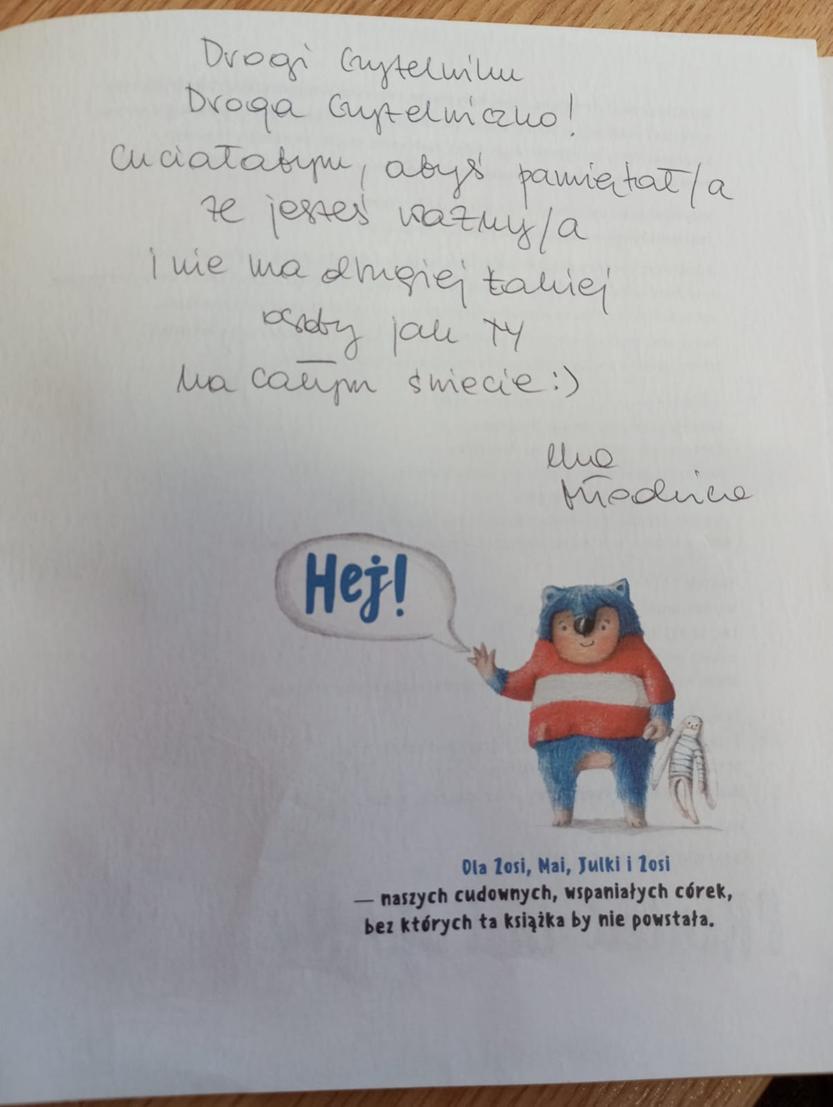 Drogi Czytelniku
Droga Czytelniczko!
Chciałabym, abyś pamiętał/a
że jesteś ważny/a
i nie ma drugiej takiej
osoby jak TY
na całym świecie :)
Młodnicka
Hej!
Dla Zosi, Mai, Julki i Zosi
— naszych cudownych, wspaniałych córek,
bez których ta książka by nie powstała.